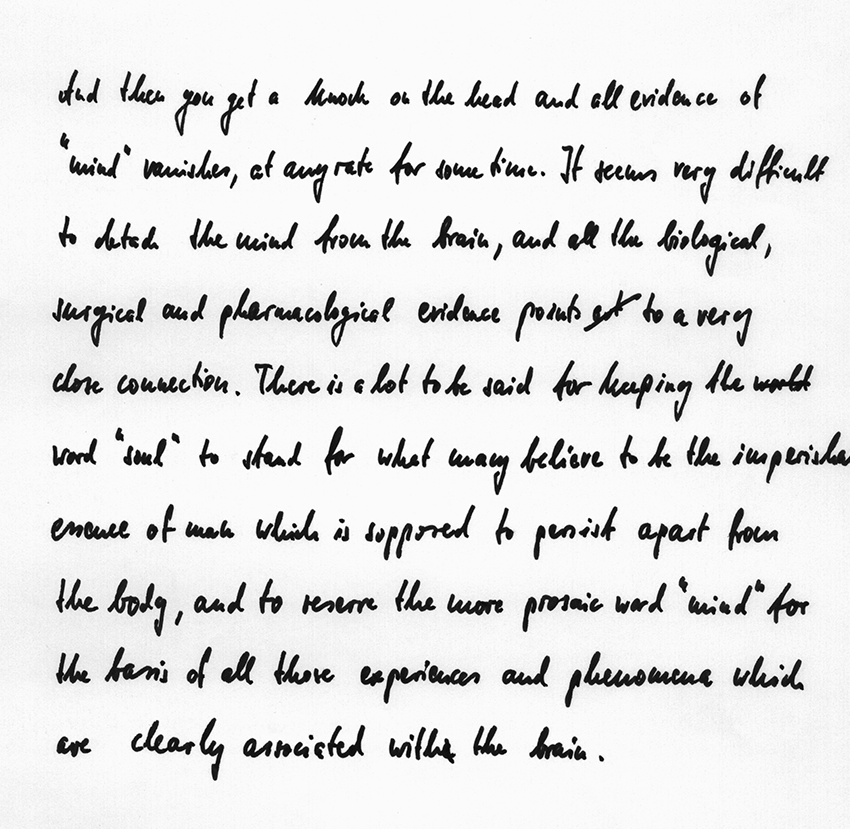 And then you get a knock on the head and all evidence of
"mind" vanishes, at any rate for some time. It seems very difficult
to detach the mind from the brain, and all the biological,
surgical and pharmacological evidence points to a very
close connection. There is a lot to be said for keeping the world
word "soul" to stand for what many believe to be the imperisha
essence of man which is supposed to persist apart from
the body, and to reserve the more prosaic word "mind" for
the basis of all those experiences and phenomena which
are clearly associated with the brain.